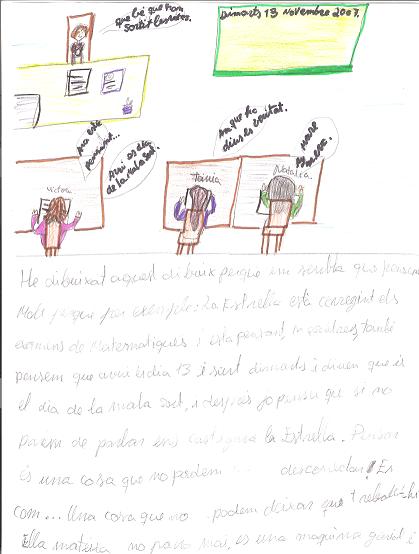 que bé que han
sortit les notes.
Dimarts 13 Novembre 2007.
ma està
pensant...
Avui es dia
de la mala sort.
ma que ho
dius de veritat.
Victoria
Tània
Natalia
He dibuixat aquest dibuix perque em sembla que pensem
Molt ja que per exemple: La Estrella està corregint els
examens de Matematiques i esta pensant, nosaltres també
pensem que avui es dia 13 i sent dimarts i diuen que es
el dia de la mala sort, i després jo penso que si no
parem de parlar ens castigara la Estrella. Pensar
és una cosa que no podem descuidar! És
com... Una cosa que no podem deixar que
Ella mateixa no para mai, es una maquina genial.